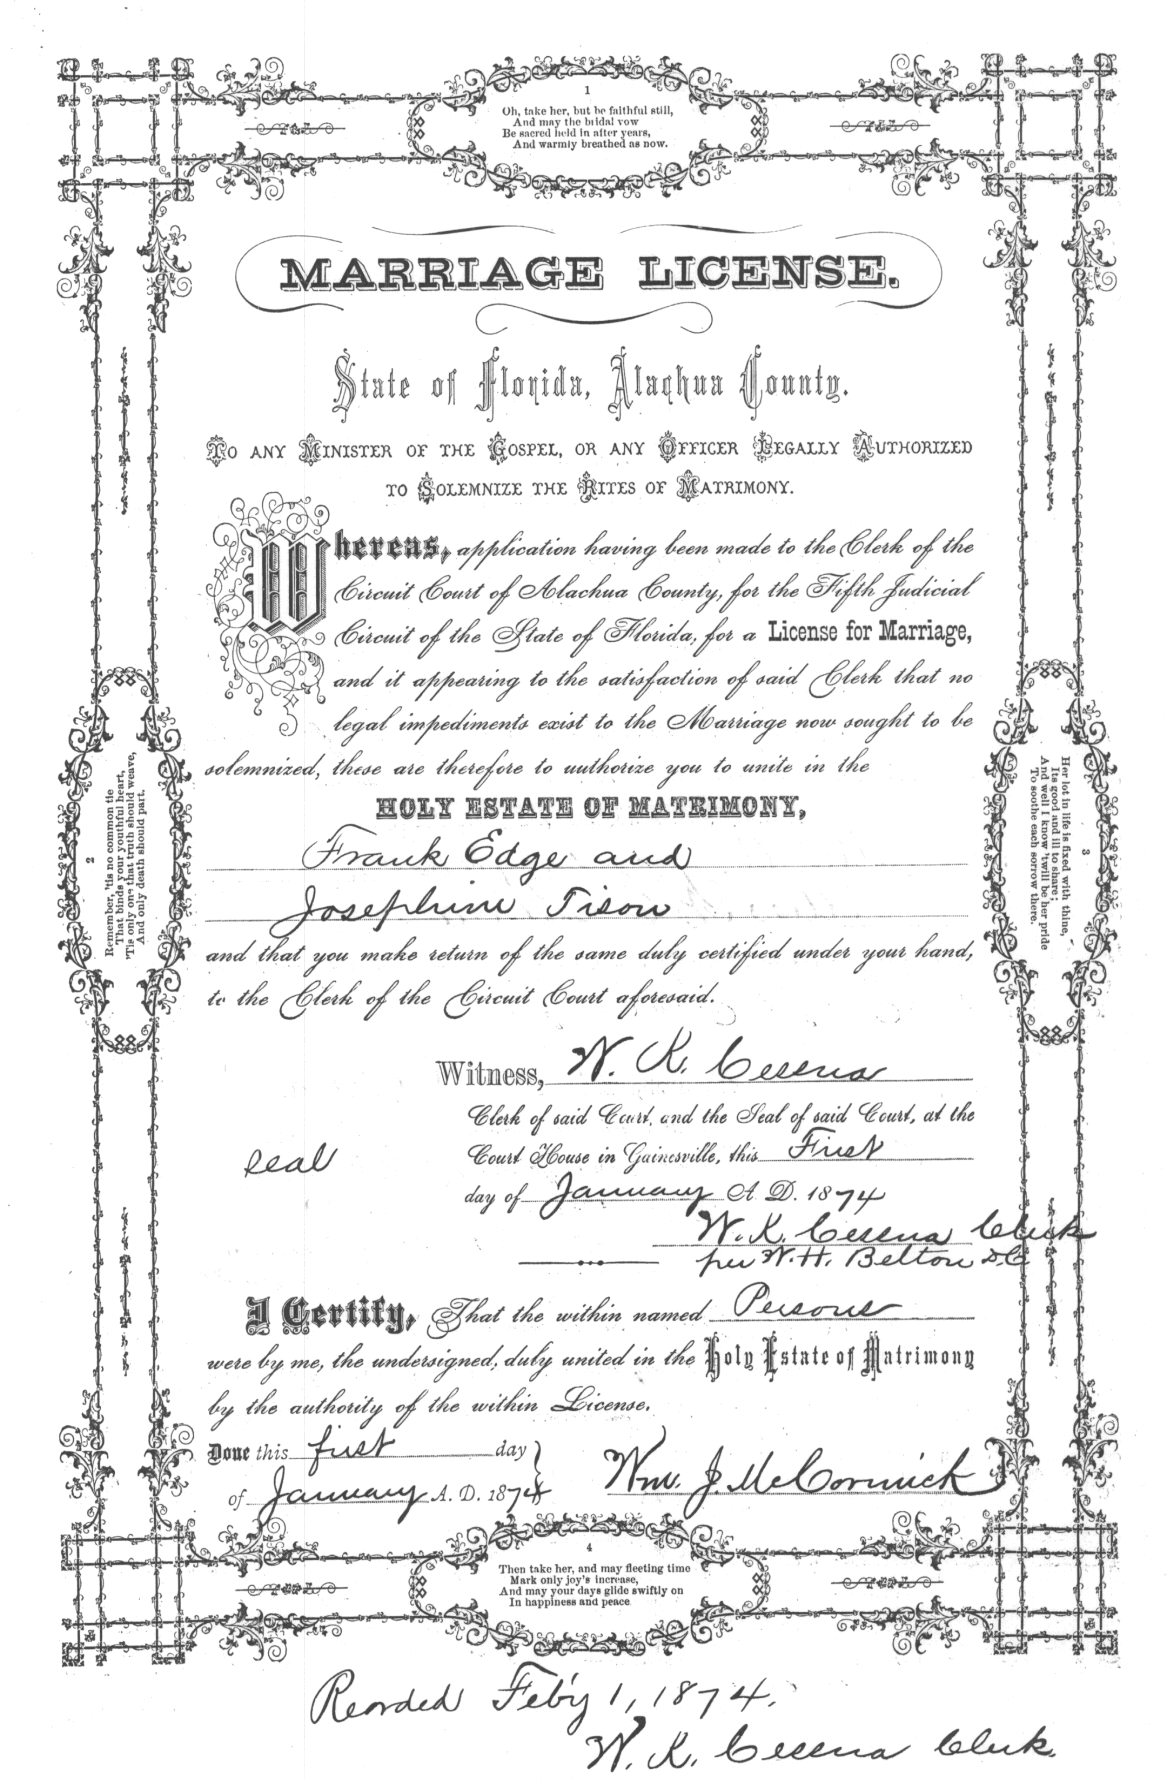 1
Oh, take her, but be faithful still,
And may the bridal vow
Be sacred held in after years,
And warmly breathed as now.
MARRIAGE LICENSE.
State of Florida, Alachua County.
TO ANY MINISTER OF THE GOSPEL, OR ANY OFFICER LEGALLY AUTHORIZED
TO SOLEMNIZE THE RITES OF MATRIMONY.
Whereas, application having been made to the Clerk of the
Circuit Court of Alachua County, for the Fifth Judicial
Circuit of the State of Florida, for a License for Marriage,
and it appearing to the satisfaction of said Clerk that no
legal impediments exist to the Marriage now sought to be
solemnized, these are therefore to authorize you to unite in the
HOLY ESTATE OF MATRIMONY,
Frank Edge and
Josephine Tison
and that you make return of the same duly certified under your hand,
to the Clerk of the Circuit Court aforesaid.
2
Remember, 'tis no common tie
That binds your youthful heart,
'Tis only one that truth should weave,
And only death should part.
3
Her lot in life is fixed with thine,
Its good and ill to share;
And well I know 'twill be her pride
To soothe each sorrow there.
Witness, W. K. Cessna
Clerk of said Court, and the Seal of said Court, at the
seal
Court House in Gainesville, this First
day of January A. D. 1874
W. K. Cessna Clerk
per W. H. Belton D.C
I Certify, That the within named Persons
were by me, the undersigned, duly united in the Holy Estate of Matrimony
by the authority of the within License.
Done this first day
of January A. D. 1874
Wm. J. McCormick
4
Then take her, and may fleeting time
Mark only joy's increase,
And may your days glide swiftly on
In happiness and peace
Reorded Feb'y 1, 1874.
W. K. Cessna Clerk.